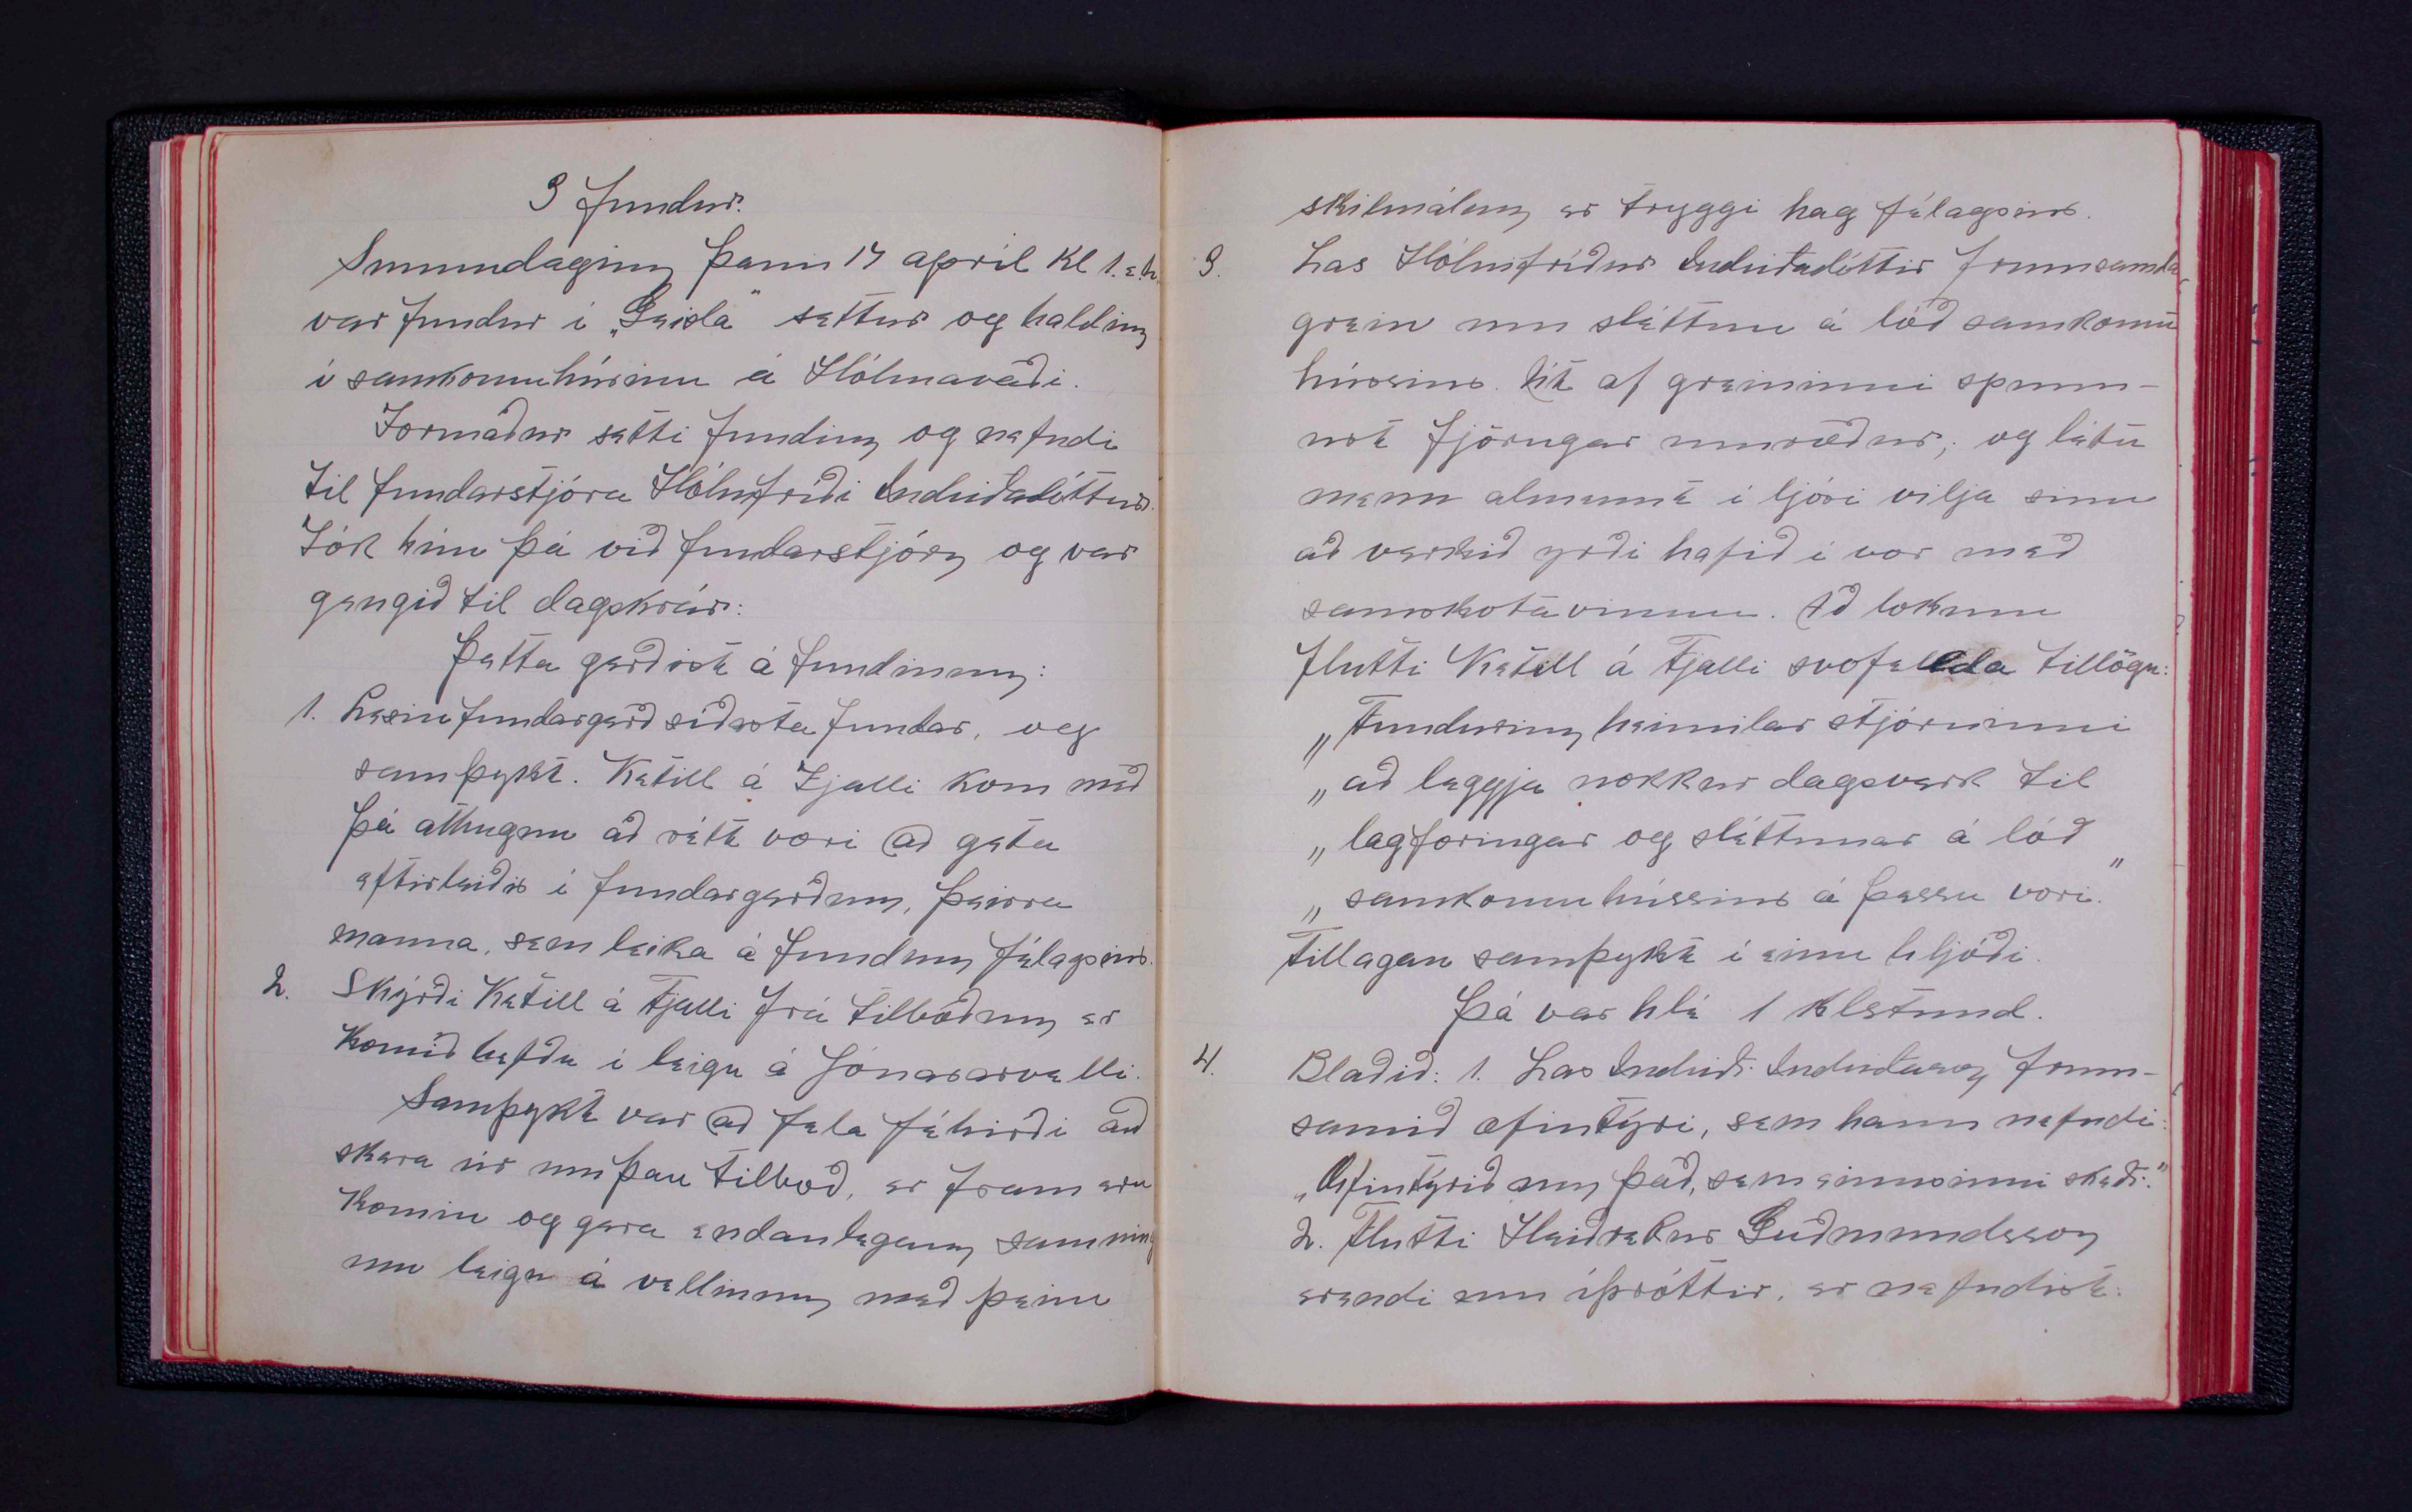 3 fundur.
Sunnudaginn þann 17 apríl kl 1. e.h.
var fundur í „Geisla" settur og haldinn
í samkomuhúsinu á Hólmavaði.
Formaður setti fundinn og nefndi
til fundarstjóra Hólmfríði Indriðadóttur.
Tók hún þá við fundarstjórn og var
gengið til dagskrár:
Þetta gerðist á fundinum:
1. Lesin fundargerð síðasta fundar, og
samþykt. Ketill á Fjalli kom með
þá athugun að rétt væri að geta
eftirleiðis í fundargerðum, þeirra
manna, sem leika á fundum félagsins.
2. Skýrði Ketill á Fjalli frá tilboðum er
komið hefðu í leigu á Jónasarvelli.
Samþykt var að fela féhirði að
skera úr um þau tilboð, er fram eru
komin og gera endanlegann samning
um leigu á vellinum með þeim
skilmálum er tryggi hag félagsins.
3. Las Hólmfríður Indriðadóttir frumsamda
grein um sléttun á lóð samkomu
hússins. Út af greininni spunn-
ust fjörugar umræður, og létu
menn almennt í ljósi vilja sinn
að verkið yrði hafið í vor með
samskotavinnu. Að lokum
flutti Ketill á Fjalli svofellda tillögu:
„Fundurinn heimilar stjórninni
„að leggja nokkur dagsverk til
„lagfæringar og sléttunar á lóð
„samkomuhússins á þessu vori."
Tillagan samþykt í einu hljóði.
Þá var hlé 1 klstund.
4. Blaðið: 1. Las Indriði Indriðason frum-
samið æfintýri, sem hann nefndi:
„Æfintýrið um það, sem einusinni skeði."
2. Flutti Heiðrekur Guðmundsson
erendi um íþróttir, er nefndist: